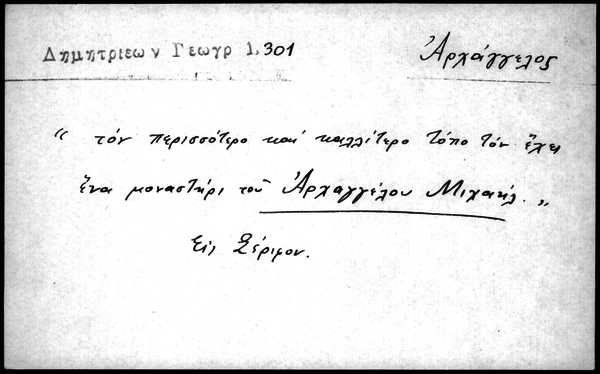 Δημητριεων Γεωγρ 1, 301
Ἀρχάγγελος
“ τόν περισσότερο καί καλλίτερο τόπο τόν ἔχει
ἕνα μοναστήρι τοῦ Ἀρχαγγέλου Μιχαήλ. „
Εἰς Σέριμον.